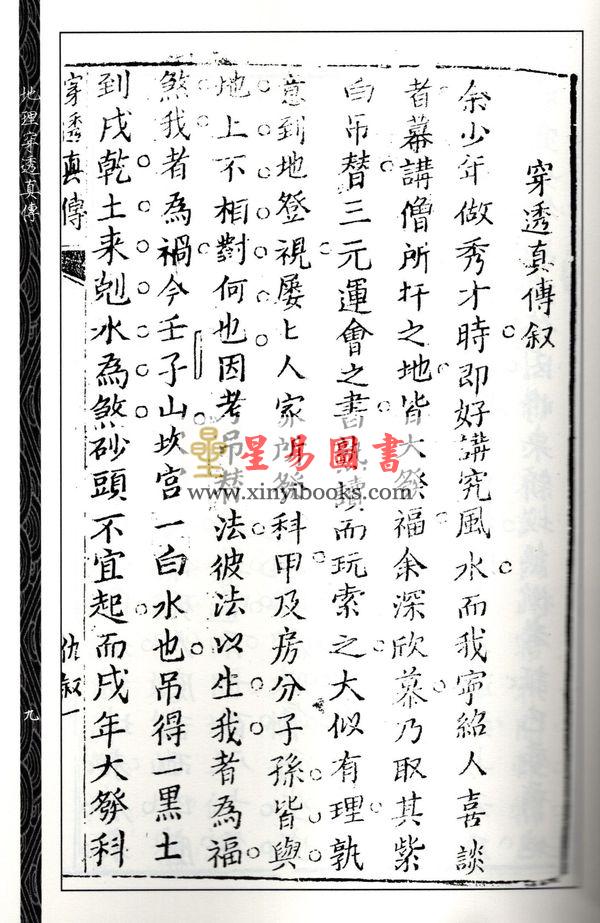 穿透真傳叙
余少年做秀才時即好講究風水而我寧紹人喜談
者幕講僧所扦之地皆大發福余深欣慕乃取其紫
白吊替三元運會之書熟讀而玩索之大似有理孰
意到地登視屡々人家所發科甲及房分子孫皆與
地上不相對何也因考吊替法彼法以生我者為福
煞我者為禍今壬子山坎宫一白水也吊得二黑土
到戌乾土来剋水為煞砂頭不宜起而戌年大發科
穿透真傳
仇叙一
地理穿透真傳
九
星易圖書
www.xinyibooks.com